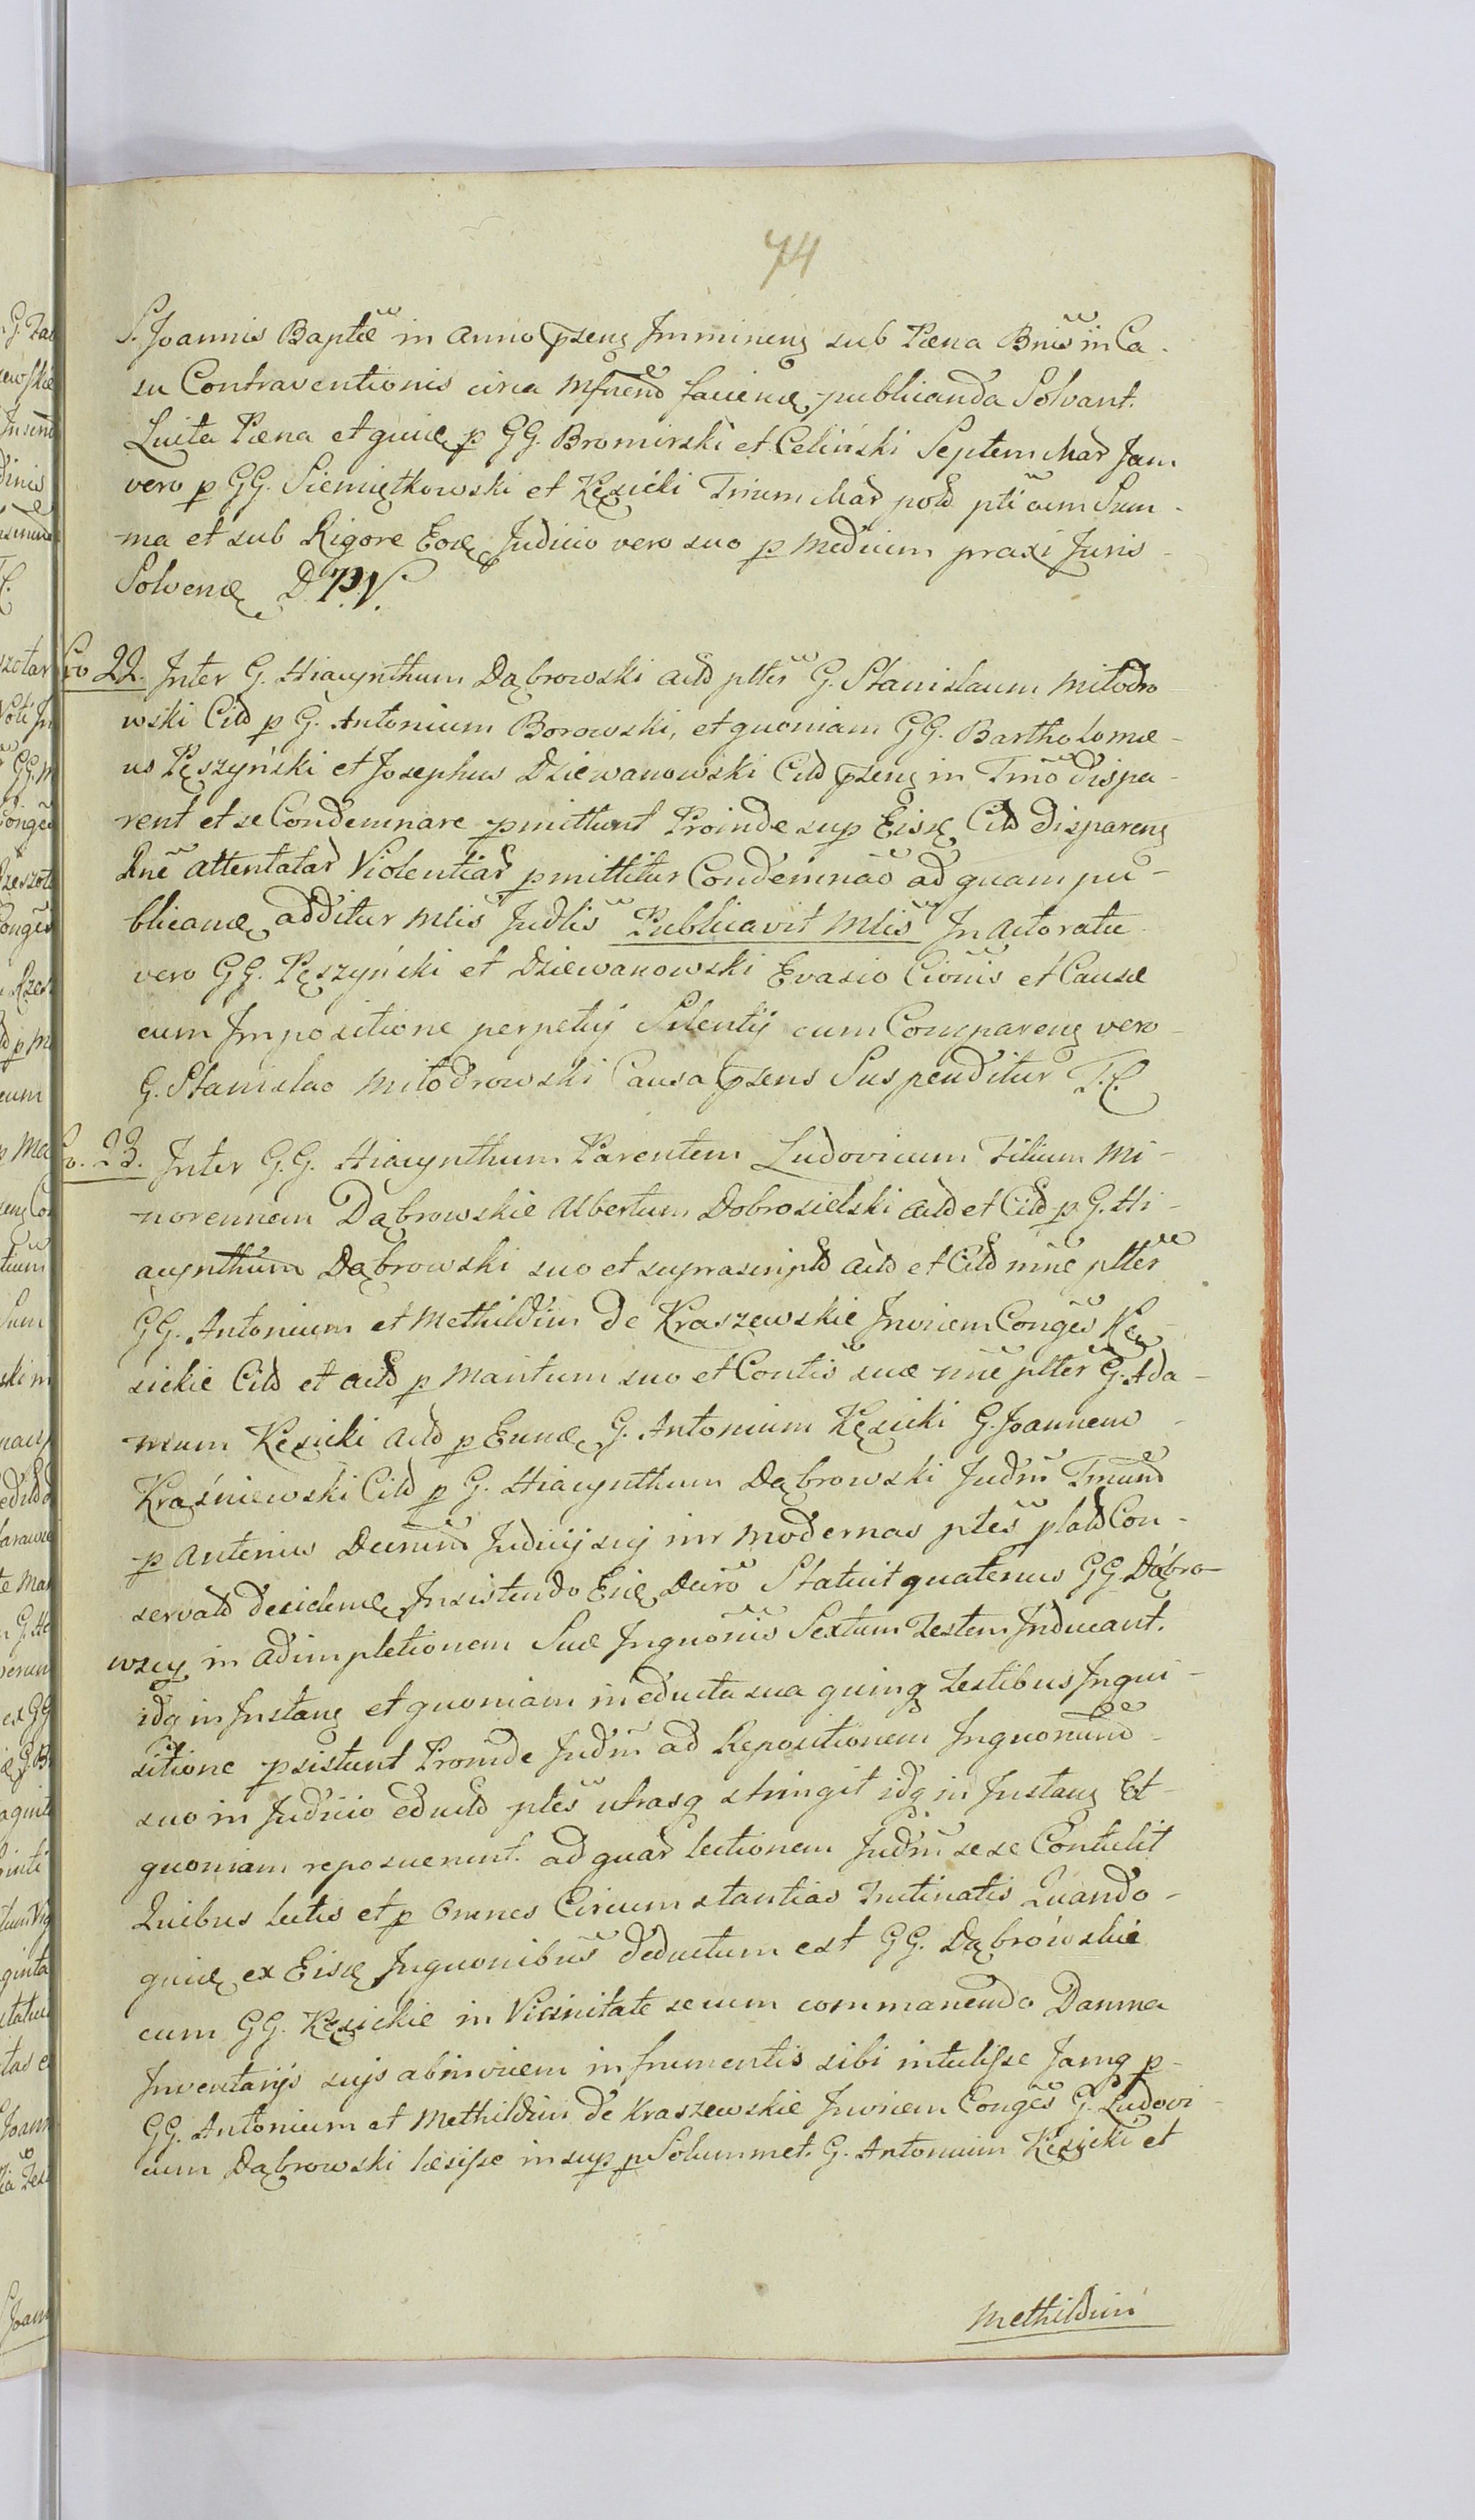 74
S. Joannis Baptae in Anno psenq Imminenq sub Paena Bnis in Ca-
su Contraventionis circa facienae publicanda Solvant.
Luita Paena et quiae p GG. Bromirski et Celiński Septem Mar Jam
vero p GG. Siemiętkowski et Kęsicki Trium Mar pold pti cum Sum-
ma et sub Rigore Eoae Judicio vero suo p medium praxi Juris
Solvenae D. P. N.
Co 22. Inter G. Hiacynthum Dąbrowski actd plter G. Stanislaum Miłodro-
wski Citd p G. Antonium Borowski, et quoniam GG. Bartholomae-
us Pęszyński et Josephus Dziewanowski Citd psenq in Tmo dispa-
rent et se Condemnare pmittunt Proinde sup Eisae Citd disparenq
Rne attentatar Violentiar pmittitur Condemnao ad quam pu-
blicanae additur Mlis Judlis Publicavit Mlis In actoratu
vero GG. Pęszyński et Dziewanowski Evasio Cionis et Causae
cum Impositione perpetij Silentij cum Comparenq vero
G. Stanislao Miłodrowski Causa psens Suspenditur T. C.
Co. 23. Inter G.G. Hiacynthum Parentem Ludovicum Filium Mi-
norennem Dąbrowskie Albertum Dobrosielski actd et Citd p G. Hi-
acynthum Dąbrowski suo et suprascriptd actd et Citd nne plter
GG. Antonium et Methildim de Kraszewskie Invicem Conges Kę-
sickie Citd et actd p Maritum suo et Contis suae nne plter G. Ada-
mum Kęsicki actd p Eunae G. Antonium Kęsicki G. Joannem
Kraśniewski Citd p G. Hiacynthum Dąbrowski Judm Tmund
p Anterius Decrum Judicij sui inr modernas ptes platd Con-
servatd decidenae Insistendo Eiae Decro Statuit quatenus GG Dąbro-
wscy in adimpletionem Suae Inquonis Sextum Testem Inducant.
idq in Instanq et quoniam in educta sua quinq Testibus Inqui-
sitione psistunt Proinde Judm ad Repositionem Inquonum
suo in Judicio eductd ptes utrasq stringit idq in Instanq Et
quoniam reposuerunt. ad quar lectionem Judm sese Contulit
Quibus lectis et p Omnes Circumstantias trutinatis Quando-
quiae ex Eisae Inquonibus deductum est GG. Dąbrowskie
cum GG. Kęsickie in Vicinitate secum commanendo Damna
Inventarijs suis abinvicem in frumentis sibi intulisse Jamq p
GG. Antonium et Methildim de Kraszewskie Invicem Conges G. Ludovi-
cum Dąbrowski laesisse insup p Solummet. G. Antonium Kęsicki et
Methildim